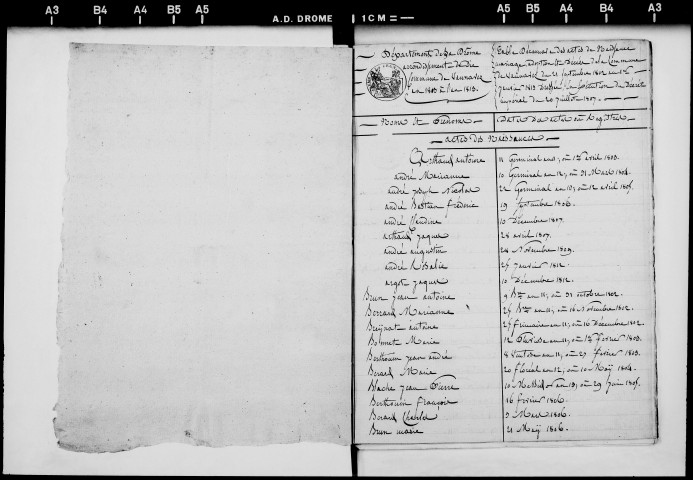 A3 B4 A4 B5 A5 A.D. DROME 1 CM = A5 B5 A4 B4 A3
Département de la Drôme
arrondissement de Die
Commune de
an 1803 à l'an 1813.
Table Décennale des actes de Naissance
mariage et Décès de la Commune
de du 21 Septembre 1802 au 1er
Janvier 1813 Dressée En Exécution du Décret
impérial du 20 juillet 1807.
Noms et Prénoms
Dates des actes au Registres
actes des Naissances
antoine 11 Germinal an 11, ou 1er avril 1803.
andré Marianne 10 Germinal an 12, ou 31 Mars 1804.
andré joseph Nicolas 22 Germinal an 13, ou 12 avril 1805.
andré Bastien frédéric 19 Septembre 1806.
andré 10 Décembre 1807.
arthaud jaques 28 avril 1807.
andré augustin 28 Novembre 1809.
andré Rosalie 25 Janvier 1812.
argot jaques 10 Décembre 1812.
Brun jean antoine 9 Bre an 11, ou 31 octobre 1802.
Marianne 25 Bre an 11, ou 16 Novembre 1802.
antoine 25 frimaire an 11, ou 16 Décembre 1802.
Bonnet Marie 12 Pluviose an 11, ou 1er février 1803.
Berthouin jean andré 8 Ventose an 11, ou 27 février 1803.
Berard Marie 20 floréal an 12, ou 10 Maÿ 1804.
Blache jean Pierre 10 Messidor an 13, ou 29 juin 1805.
Berthouin françois 16 février 1806.
Berard Charles 9 Mars 1806.
Brun marie 21 Maÿ 1806.